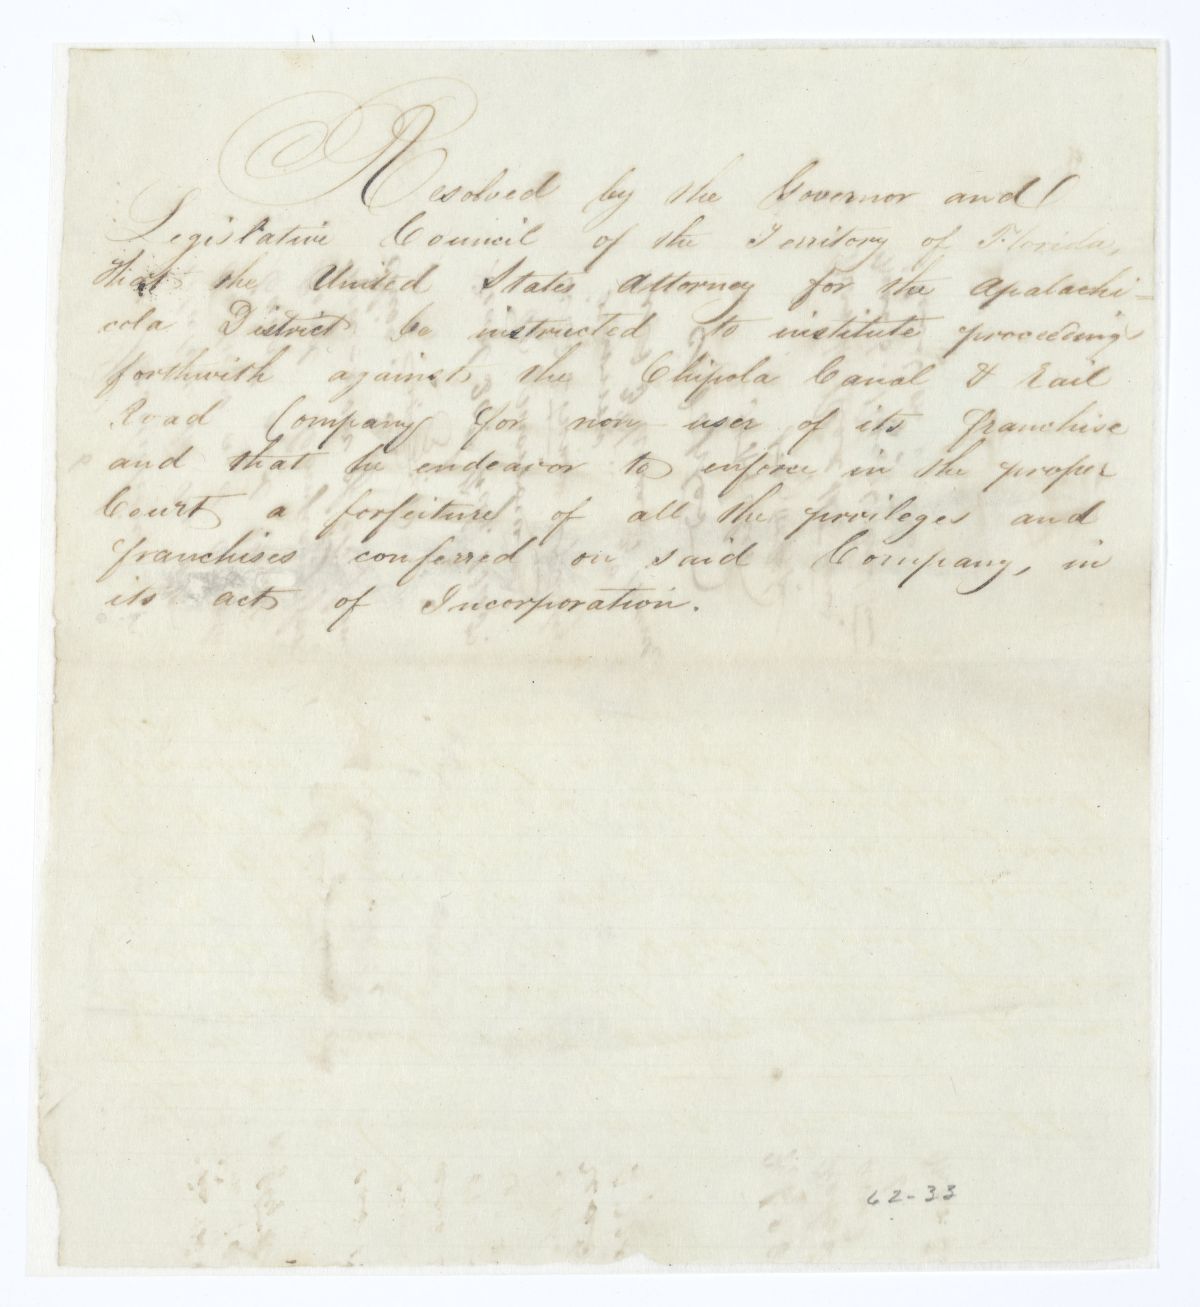 Resolved by the Governor and
Legislative Council of the Territory of Florida,
that the United States Attorney for the Apalachi-
cola District be instructed to institute proceedings
forthwith against the Chipola Canal & Rail
Road Company for non user of its franchise
and that he endeavor to enforce in the proper
Court a forfeiture of all the privileges and
franchises conferred on said Company, in
its act of Incorporation.
62-33